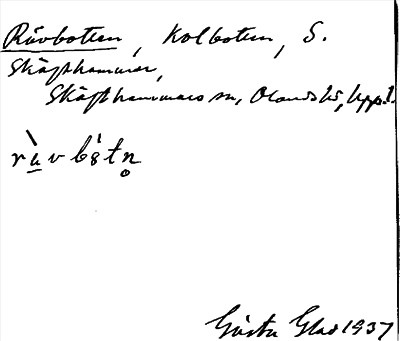 Rävbotten, Kolbotten, S.
Skäfthammar,
Skäfthammars sn, Olands hd, Uppl.
rävbȯtn̥
Gösta Glad 1937